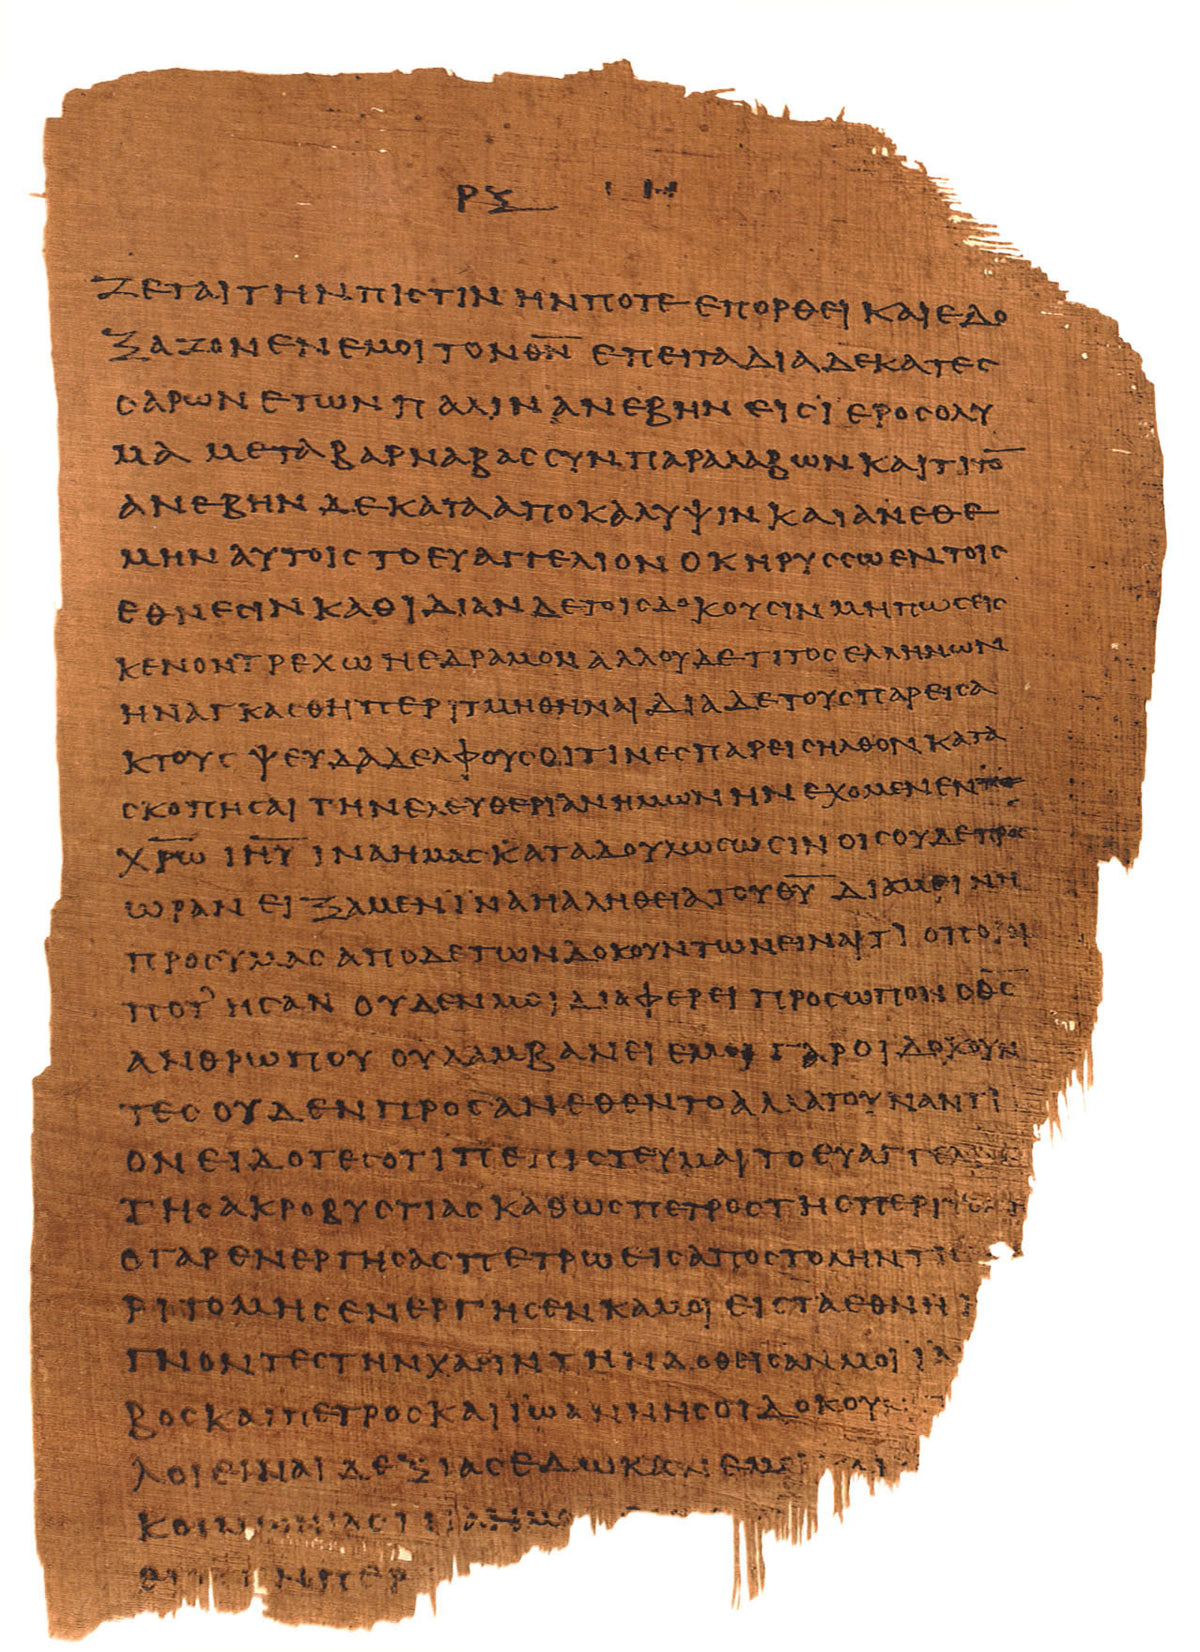 ΡΞ Ι Η
ΖΕΤΑΙ ΤΗΝ ΠΙCΤΙΝ ΗΝ ΠΟΤΕ ΕΠΟΡΘΕΙ ΚΑΙ ΕΔΟ
ΞΑΖΟΝ ΕΝ ΕΜΟΙ ΤΟΝ Θ̅Ν̅ ΕΠΕΙΤΑ ΔΙΑ ΔΕΚΑΤΕC
CΑΡΩΝ ΕΤΩΝ ΠΑΛΙΝ ΑΝΕΒΗΝ ΕΙC ΙΕΡΟCΟΛΥ
ΜΑ ΜΕΤΑ ΒΑΡΝΑΒΑC CΥΝΠΑΡΑΛΑΒΩΝ ΚΑΙ ΤΙΤΟ̅
ΑΝΕΒΗΝ ΔΕ ΚΑΤΑ ΑΠΟΚΑΛΥΨΙΝ ΚΑΙ ΑΝΕΘΕ
ΜΗΝ ΑΥΤΟΙC ΤΟ ΕΥΑΓΓΕΛΙΟΝ Ο ΚΗΡΥCCΩ ΕΝ ΤΟΙC
ΕΘΝΕCΙΝ ΚΑΘ ΙΔΙΑΝ ΔΕ ΤΟΙC ΔΟΚΟΥCΙΝ ΜΗ ΠΩC ΕΙC
ΚΕΝΟΝ ΤΡΕΧΩ Η ΕΔΡΑΜΟΝ ΑΛΛ ΟΥΔΕ ΤΙΤΟC ΕΛΛΗΝ ΩΝ
ΗΝΑΓΚΑCΘΗ ΠΕΡΙΤΜΗΘΗΝΑΙ ΔΙΑ ΔΕ ΤΟΥC ΠΑΡΕΙCΑ
ΚΤΟΥC ΨΕΥΔΑΔΕΛΦΟΥC ΟΙΤΙΝΕC ΠΑΡΕΙCΗΛΘΟΝ ΚΑΤΑ
CΚΟΠΗCΑΙ ΤΗΝ ΕΛΕΥΘΕΡΙΑΝ ΗΜΩΝ ΗΝ ΕΧΟΜΕΝ ΕΝ
Χ̅Ρ̅Ω̅ Ι̅Η̅Υ̅ ΙΝΑ ΗΜΑC ΚΑΤΑΔΟΥΛΩCΩCΙΝ ΟΙC ΟΥΔΕ ΠΡΟC
ΩΡΑΝ ΕΙΞΑΜΕΝ ΙΝΑ Η ΑΛΗΘΕΙΑ ΤΟΥ Θ̅Υ̅ ΔΙΑΜΕΙΝΗ
ΠΡΟC ΥΜΑC ΑΠΟ ΔΕ ΤΩΝ ΔΟΚΟΥΝΤΩΝ ΕΙΝΑΙ ΤΙ ΟΠΟΙΟΙ
ΠΟΤ ΗCΑΝ ΟΥΔΕΝ ΜΟΙ ΔΙΑΦΕΡΕΙ ΠΡΟCΩΠΟΝ Ο Θ̅C̅
ΑΝΘΡΩΠΟΥ ΟΥ ΛΑΜΒΑΝΕΙ ΕΜΟΙ ΓΑΡ ΟΙ ΔΟΚΟΥΝ
ΤΕC ΟΥΔΕΝ ΠΡΟCΑΝΕΘΕΝΤΟ ΑΛΛΑ ΤΟΥΝΑΝΤΙ
ΟΝ ΕΙΔΟΤΕC ΟΤΙ ΠΕΠΙCΤΕΥΜΑΙ ΤΟ ΕΥΑΓΓΕΛΙΟΝ
ΤΗC ΑΚΡΟΒΥCΤΙΑC ΚΑΘΩC ΠΕΤΡΟC ΤΗC ΠΕΡΙΤΟΜΗ
Ο ΓΑΡ ΕΝΕΡΓΗCΑC ΠΕΤΡΩ ΕΙC ΑΠΟCΤΟΛΗΝ ΤΗC
ΡΙΤΟΜΗC ΕΝΕΡΓΗCΕΝ ΚΑΜΟΙ ΕΙC ΤΑ ΕΘΝΗ
ΓΝΟΝΤΕC ΤΗΝ ΧΑΡΙΝ ΤΗΝ ΔΟΘΕΙCΑΝ ΜΟΙ ΙΑ
ΒΟC ΚΑΙ ΠΕΤΡΟC ΚΑΙ ΙΩΑΝΝΗC ΟΙ ΔΟΚΟΥ
ΛΟΙ ΕΙΝΑΙ ΔΕΞΙΑC ΕΔΩΚΑΝ ΕΜΟΙ ΚΑΙ
ΚΟΙΝΩΝΙΑC ΙΝΑ ΗΜ